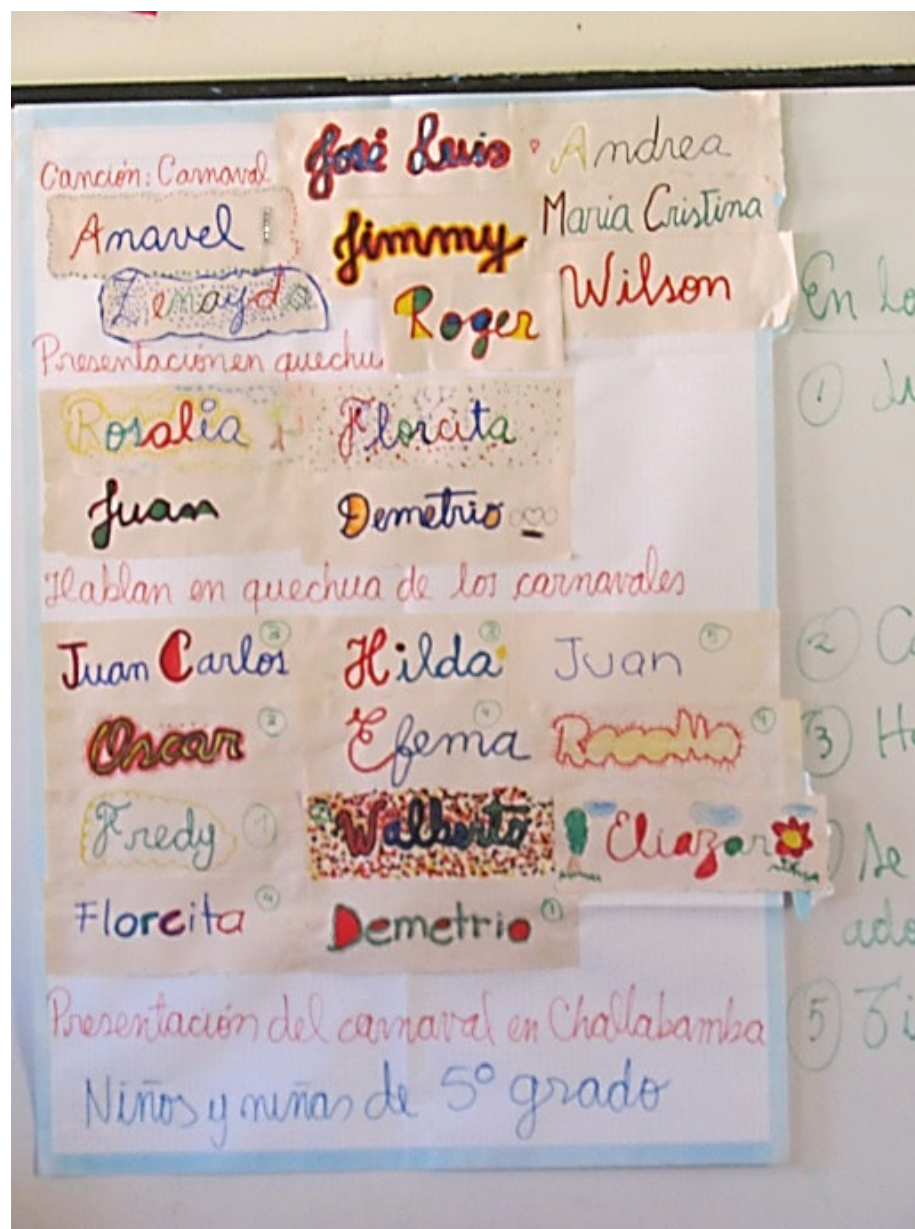 Canción: Carnaval
José Luis
Andrea
Anavel
Jimmy
Maria Cristina
Zenayda
Roger
Wilson
Presentación en quechu
Rosalia
Florcita
Juan
Demetrio
Hablan en quechua de los carnavales
Juan Carlos 3
Hilda 3
Juan 5
Oscar 2
Efema 4
Fredy 1
Walberto
Eliazar
Florcita 4
Demetrio 1
Presentación del carnaval en Challabamba
Niños y niñas de 5º grado
En
1
2
3
ado
5